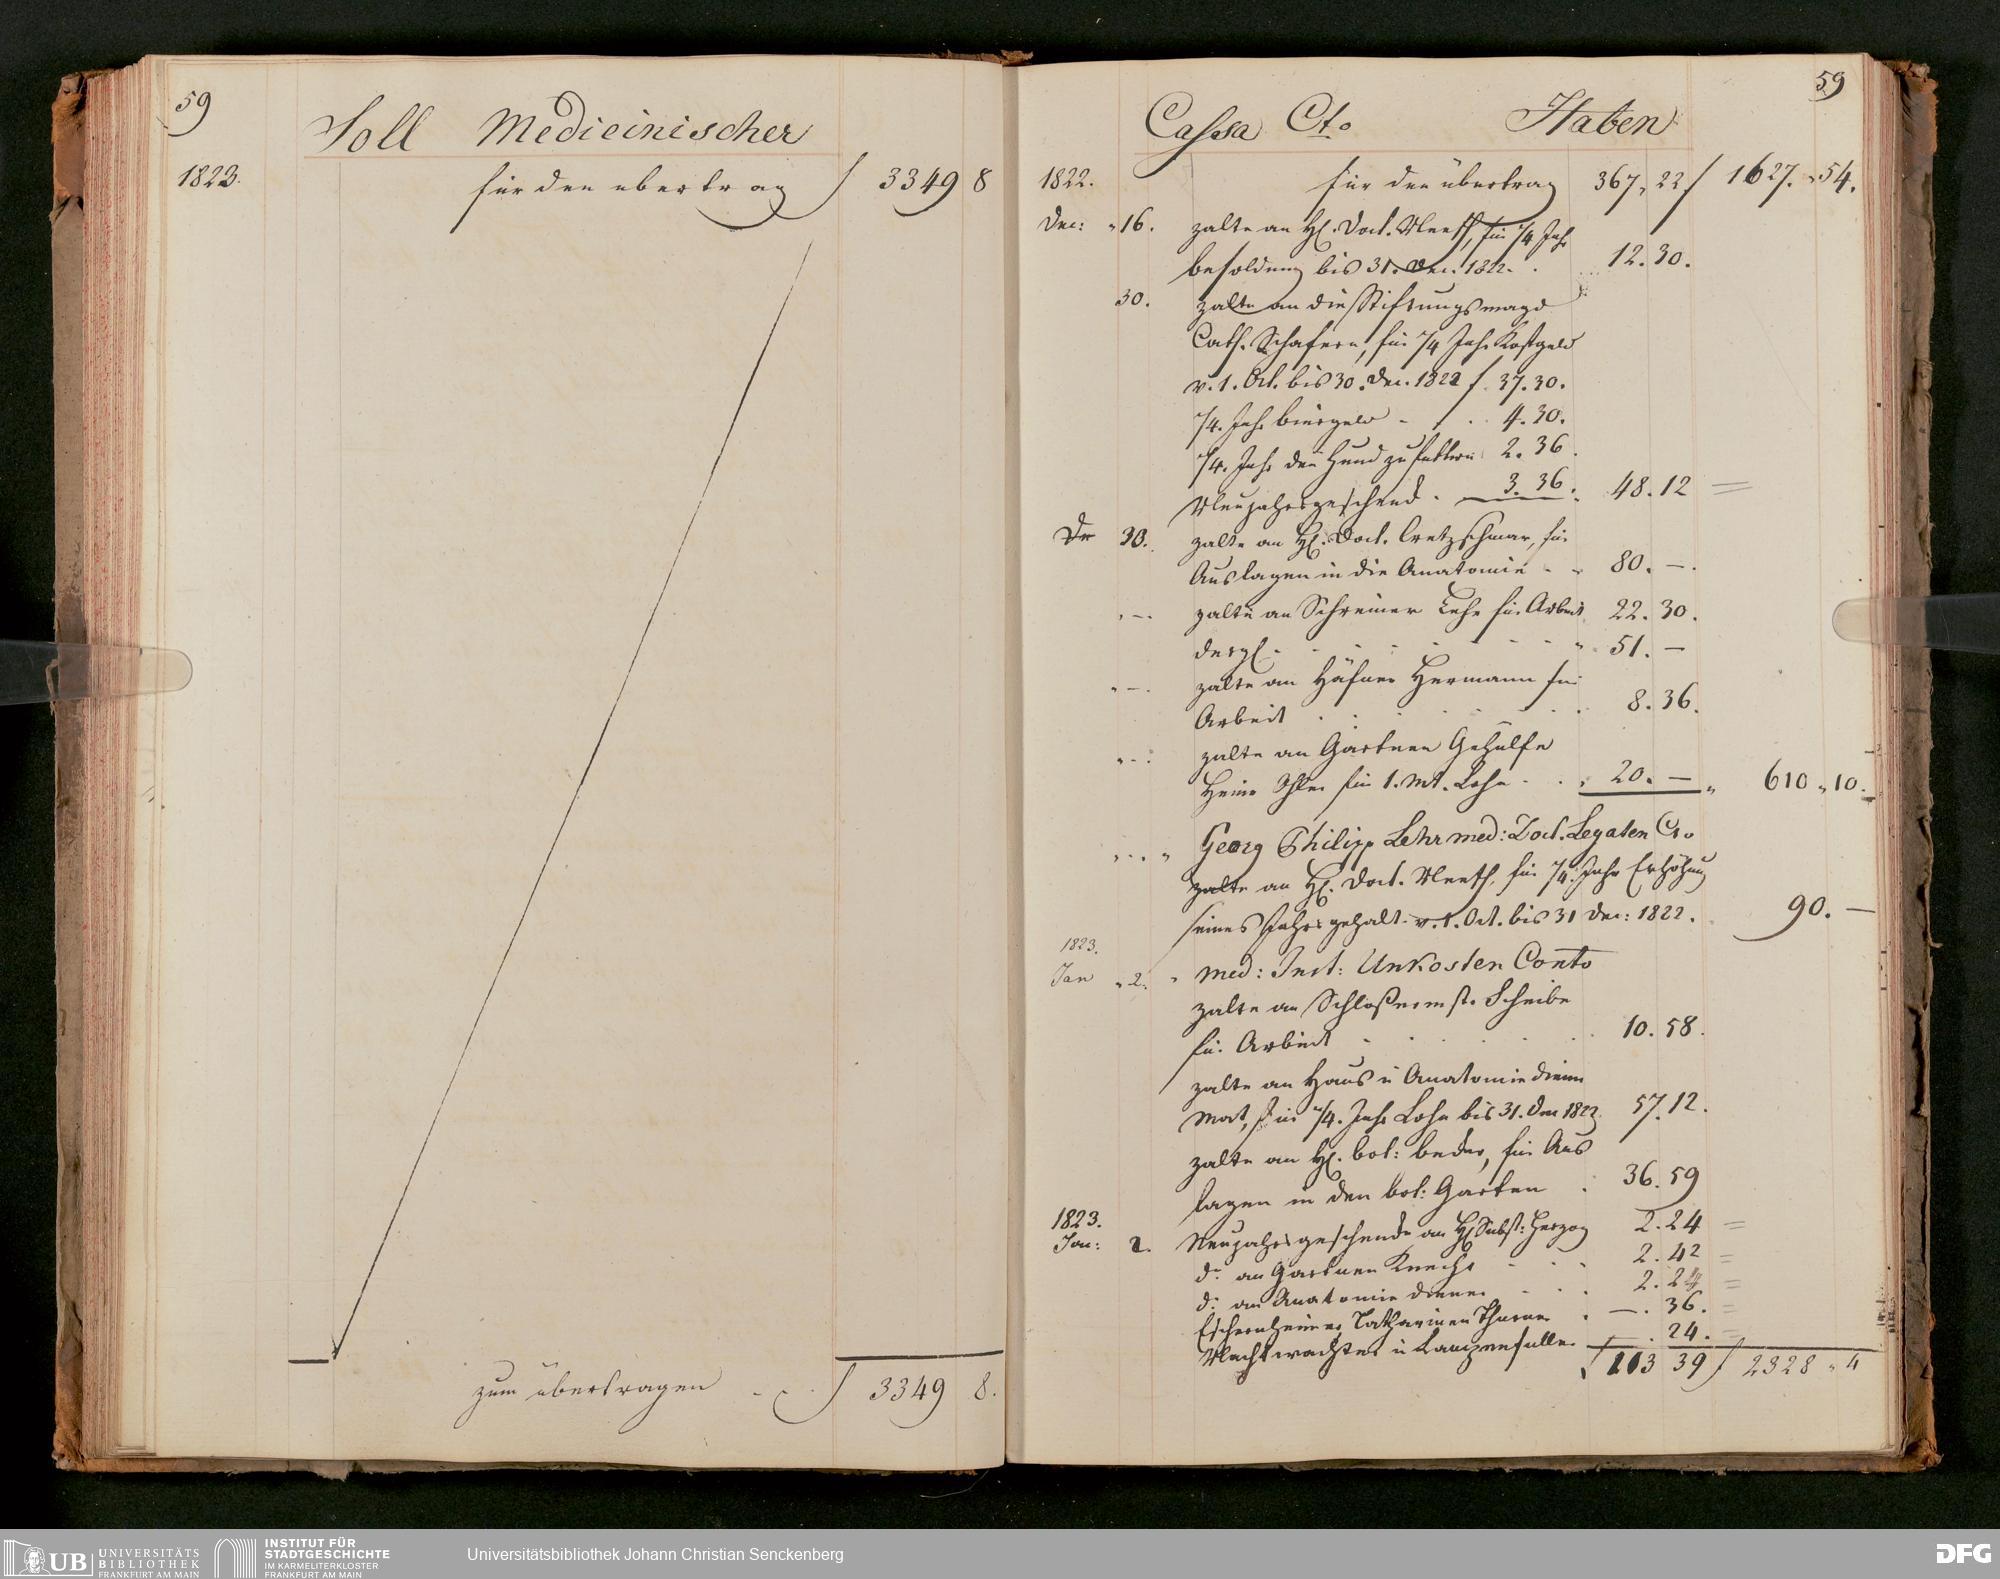 59
Soll Medicinischer
1823.
für den übertrag f 3349 8
zum übertragen f 3349 8.
59
Cassa Cto Haben
1822. für den übertrag 367 „ 22 f 1627. „ 54.
Dec: „ 16. zalte an H. Doct. Neeff, für 1/4 Jahr
besoldung bis 31. Dec. 1822. 12. 30.
30. zalte an die Stiftungsmagd
Cath. Schafern, für 1/4 Jahr Kostgeld
v. 1. Oct. bis 30. Dec. 1822 f 37. 30.
1/4. Jahr biergeld - 4. 30.
1/4. Jahr den Hund zu futtern 2. 36.
Neujahrsgeschenck . 3. 36. 48. 12
30. zalte an H. Doct. Cretzschmar, für
Auslagen in die Anatomie - 80. —.
zalte an Schreiner Lehr für Arbeit 22. 30.
dergl. 51. —
zalte an Häfner Hermann für
Arbeit 8. 36.
zalte an Gärtner Gehülfe
für 1. Mt. Lohn 20. — „ 610 „ 10.
Georg Philipp Lehr med: Doct. Legaten Cto
zalte an H. Doct. Neeff, für 1/4. Jahr Erhöhung
seines Jahrsgehalt. v. 1. Oct. bis 31 Dec: 1822. 90. —
1823.
Jan „ 2. „ med: Inst: Unkosten Conto
zalte an Schloßermstr. Scheibe
für Arbeit 10. 58.
zalte an Haus u Anatomiediener
für 1/4. Jahr Lohn bis 31. Dec 1822. 57. 12.
zalte an H. bot: für Aus
lagen in den bot: Garten 36. 59
1823.
Jan: 2. Neujahrsgeschencke an H. Subst: Herzog 2. 24
do. an Gärtner Knecht 2. 42
do. an Anatomie diener 2. 24
Eschernheimer —. 36.
Nachtwächter u . 24.
f 113 39 f 2328 „ 4
UB UNIVERSITÄTS
BIBLIOTHEK
FRANKFURT AM MAIN
INSTITUT FÜR
STADTGESCHICHTE
IM KARMELITERKLOSTER
FRANKFURT AM MAIN
Universitätsbibliothek Johann Christian Senckenberg
DFG